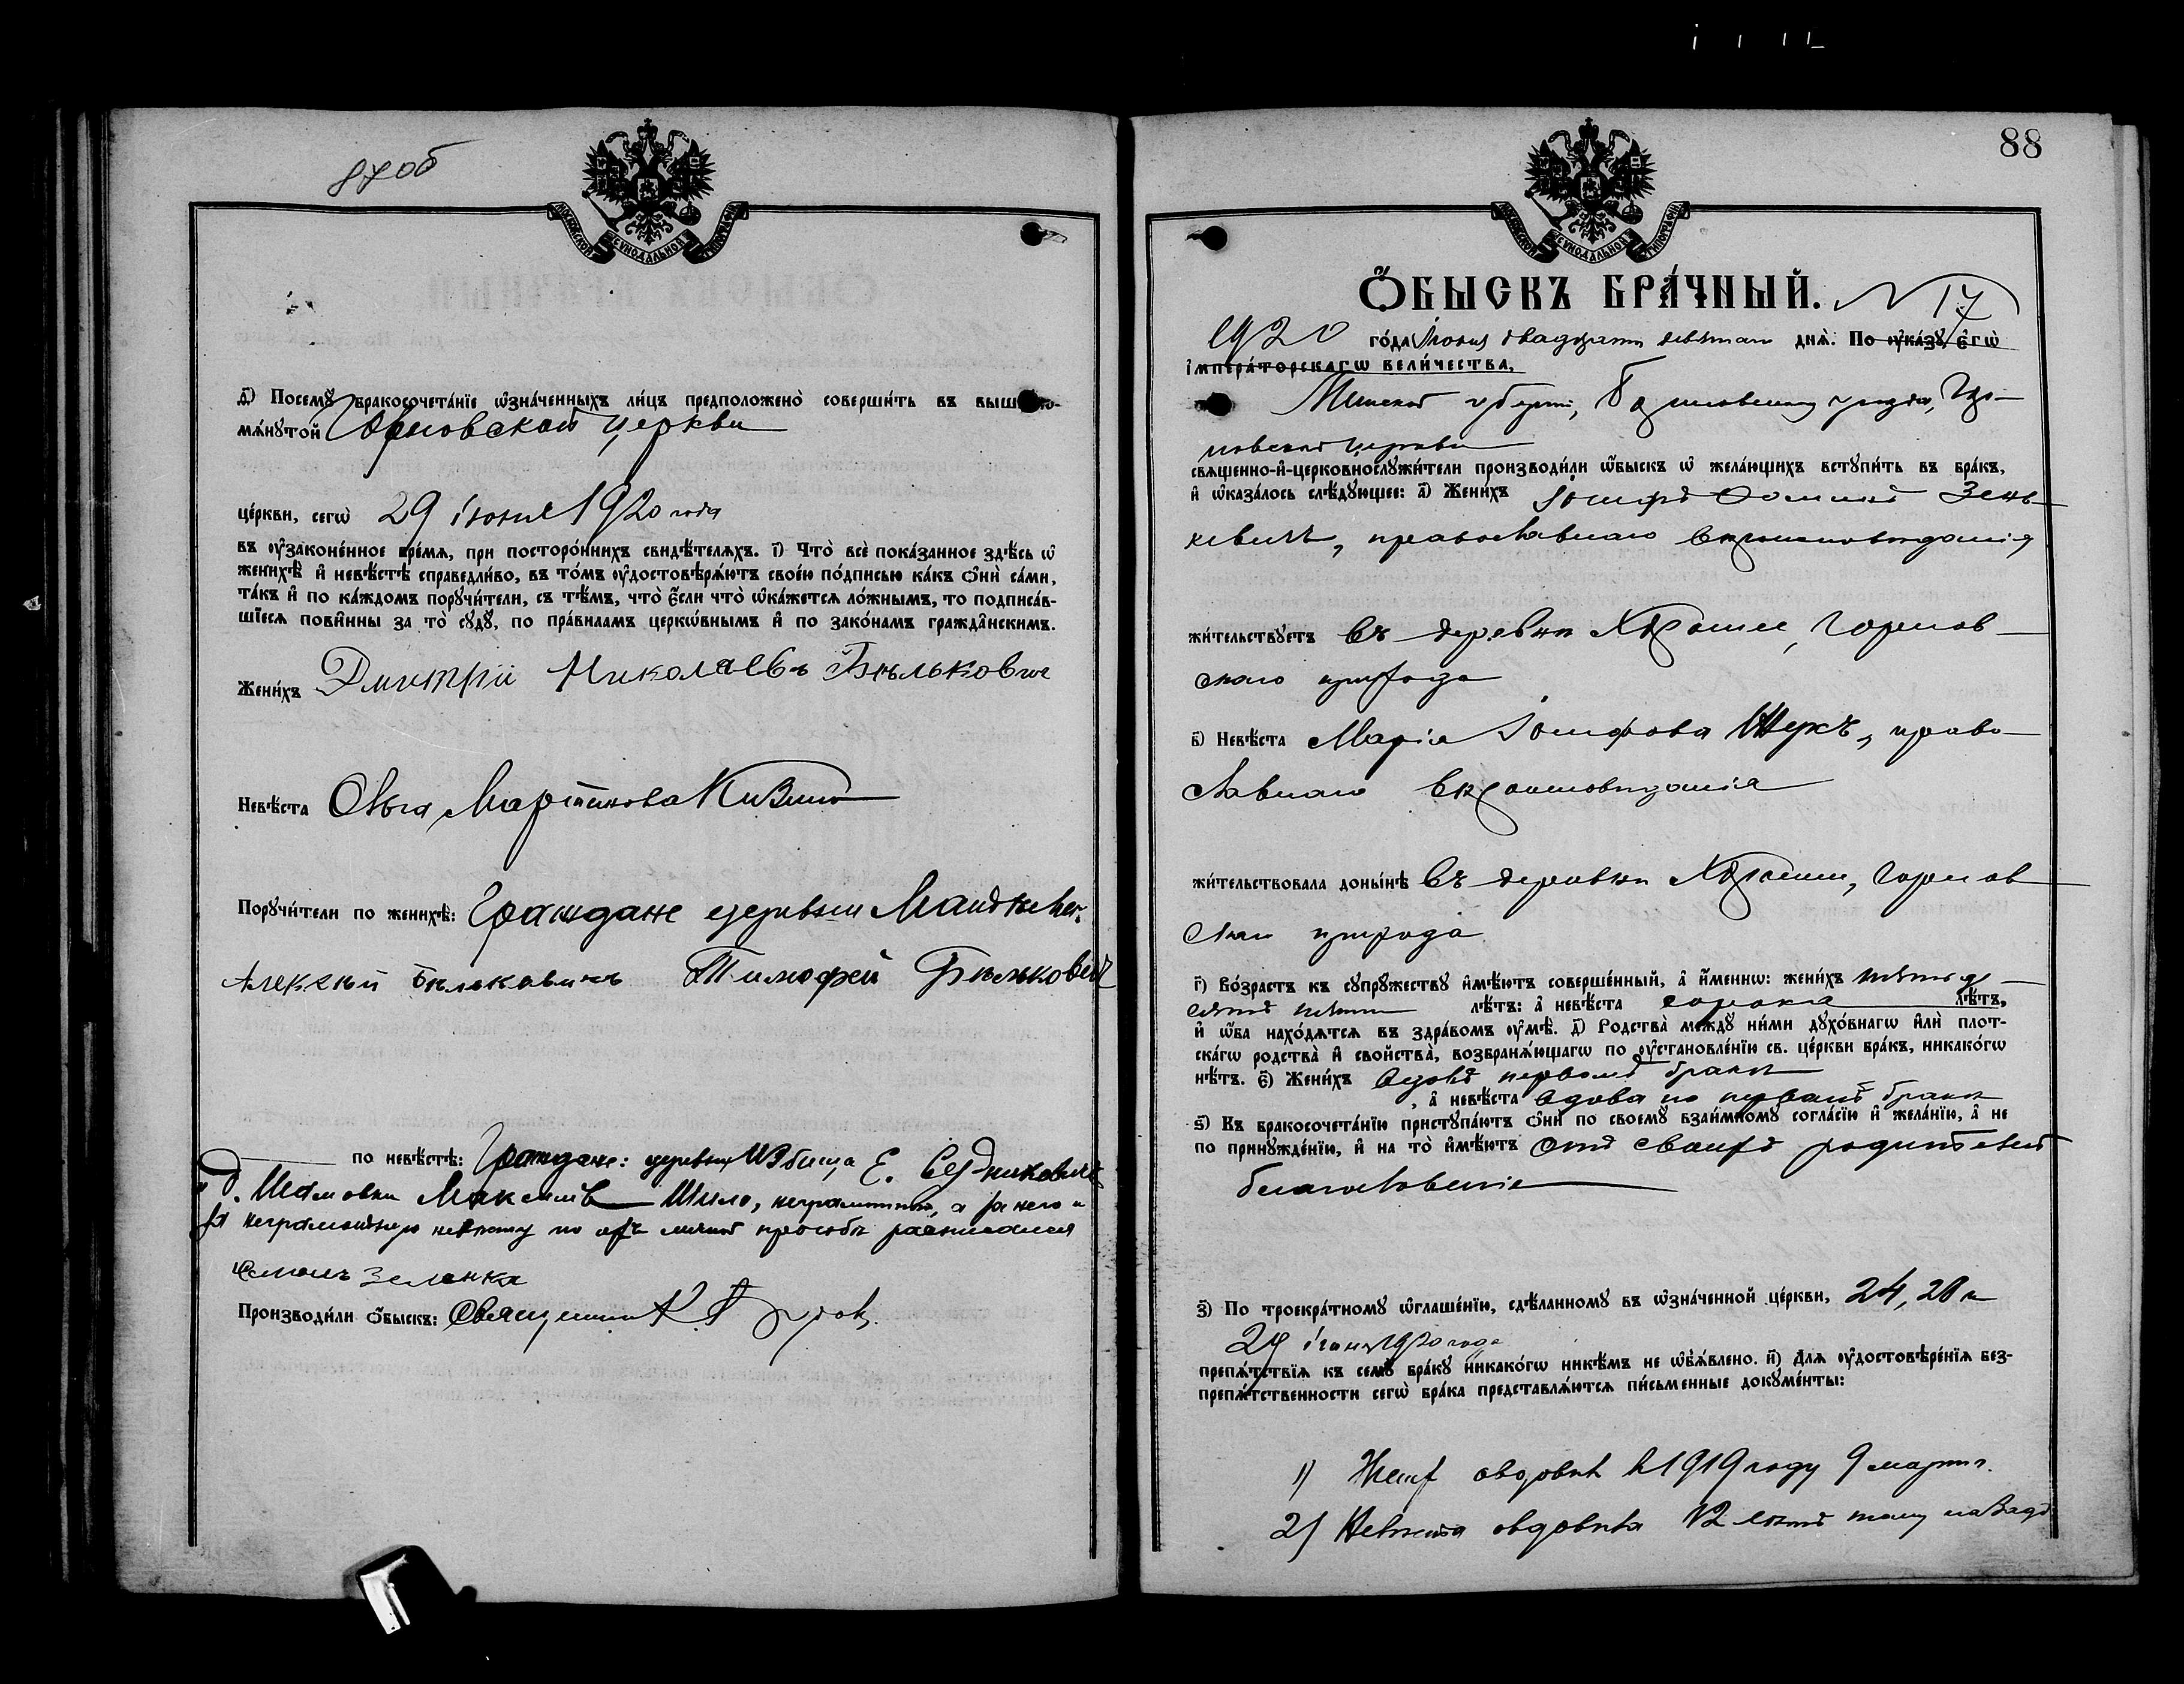 87об
МОСКОВСКОЙ СУНОДАЛЬНОЙ ТИПОГРАФІИ
д҃) Посемꙋ бракосочета́нїе ѡ҆зна́ченныхъ ли́цъ предположено̀ соверши́ть въ вышеꙋпо-
мѧ́нꙋтой Горновской церкви
це́ркви, сегѡ̀ 29 іюня 1920 года
въ ᲂу҆зако́ненное вре́мѧ, при посторо́ннихъ свидѣ́телѧхъ. і҃) Что̀ всѐ пока́занное здѣ́сь ѡ҆
женихѣ̀ и҆ невѣ́стѣ справедли́во, въ то́мъ ᲂу҆достовѣрѧ́ютъ свое́ю по́дписью ка́къ ѻ҆нѝ са́ми,
та́къ и҆ по ка́ждомъ порꙋчи́тели, съ тѣ́мъ, что̀ є҆́сли что̀ ѡ҆ка́жетсѧ ло́жнымъ, то подписа́в-
шїесѧ пови́нны за то̀ сꙋдꙋ̀, по пра́виламъ церко́внымъ и҆ по зако́намъ гражда́нскимъ.
Жени́хъ Дмитрій Николаевъ Бѣльковичъ
Невѣ́ста Ольга Мартинова
Порꙋчи́тели по женихѣ̀: Граждане деревни
Алексѣй Бѣльковичъ Тимофей Бѣльковичъ
по невѣ́стѣ: Граждане: деревни Избища Е.
и д. Максимъ Шило, неграмотный, а за него и
за неграмотную невѣсту по ихъ личной просьбѣ расписался
Семенъ Зеленка
Производи́ли ѻ҆́быскъ: Священникъ
88
МОСКОВСКОЙ СУНОДАЛЬНОЙ ТИПОГРАФІИ
Ѻ҆́БЫСКЪ БРА́ЧНЫЙ. N 17
1920 го́да Іюня двадцать девятаго днѧ̀. По ᲂу҆ка́зꙋ є҆гѡ̀
і҆мпера́торскагѡ вели́чества,
Минской губерніи, Борисовскаго уѣзда, Гор-
новской церкви
свѧще́нно-и҆-церковнослꙋжи́тели производи́ли ѻ҆́быскъ ѡ҆ жела́ющихъ встꙋпи́ть въ бра́къ,
и҆ ѡ҆каза́лось слѣ́дꙋющее: а҃) Жени́хъ Іосифъ Зень-
кевичъ, православнаго вѣроисповѣданія
жи́тельствꙋетъ въ деревнѣ Горнов-
скаго прихода
в҃) Невѣ́ста Марія Іосифова Шукъ, право-
славнаго вѣроисповѣданія
жи́тельствовала доны́нѣ въ деревнѣ Горнов
скаго прихода
г҃) Во́зрастъ къ сꙋпрꙋ́жествꙋ и҆мѣ́ютъ соверше́нный, а҆ и҆́менно: жени́хъ пятьде-
сятъ пять лѣ́тъ: а҆ невѣ́ста сорока лѣ́тъ,
и҆ ѻ҆́ба нахо́дѧтсѧ въ здра́вомъ ᲂу҆мѣ̀. д҃) Родства̀ междꙋ ни́ми дꙋхо́внагѡ и҆лѝ плот-
ска́гѡ родства̀ и҆ сво́йства̀, возбранѧ́ющагѡ по ᲂу҆становле́нїю св. це́ркви бра́къ, никако́гѡ
нѣ́тъ. є҃) Жени́хъ вдовъ первомъ бракѣ
, а҆ невѣ́ста вдова по первомъ бракѣ
ѕ҃) Къ бракосочета́нїю пристꙋпа́ютъ ѻ҆нѝ по своемꙋ̀ взаи́мномꙋ согла́сїю и҆ жела́нїю, а҆ не
по принꙋжде́нїю, и҆ на то̀ и҆мѣ́ютъ отъ своихъ родителей
благословеніе
з҃) По троекра́тномꙋ ѡ҆глаше́нїю, сдѣ́ланномꙋ въ ѡ҆зна́ченной це́ркви, 24, 28 и
29 іюня 1920 года
препѧ́тствїѧ къ семꙋ̀ бра́кꙋ никако́гѡ никѣ́мъ не ѡ҆б̾ѧ́влено. и҃) Длѧ ᲂу҆достовѣре́нїѧ без-
препѧ́тственности сегѡ̀ бра́ка представлѧ́ютсѧ пи́сьменные докꙋме́нты:
1) Жених овдовѣл в 1919 году 9 марта.
2) Невѣста овдовѣла 12 лѣтъ тому назадъ